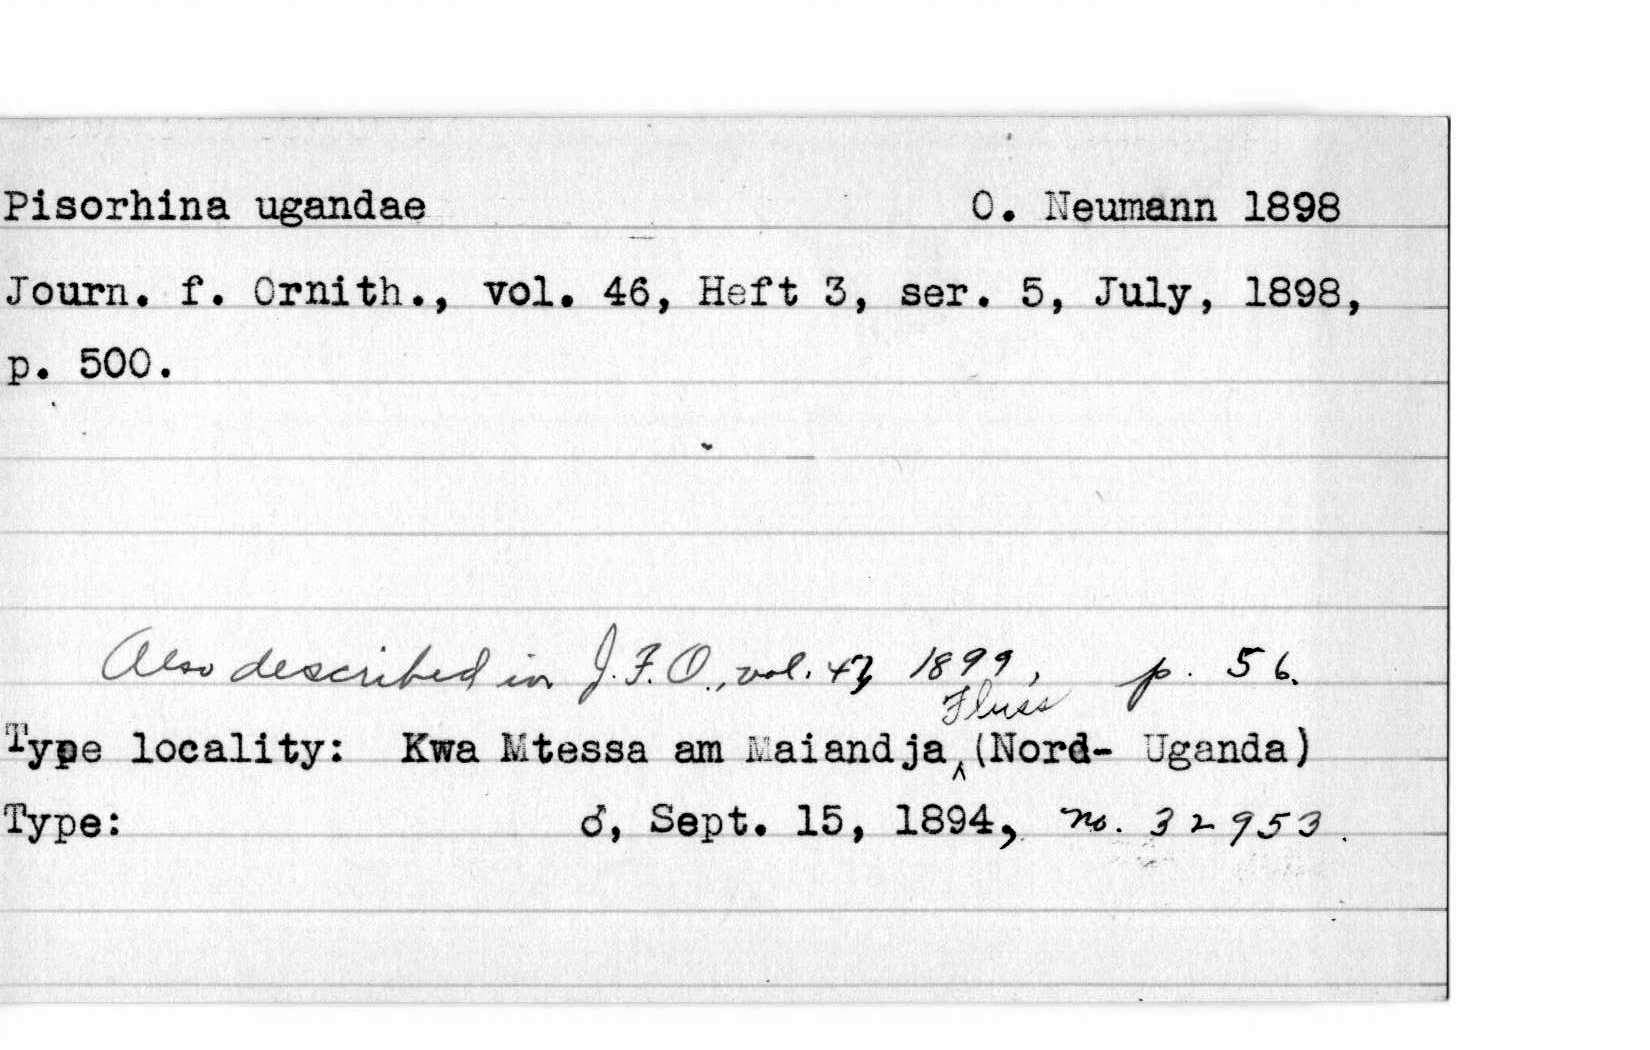 Pisorhina ugandae O. Neumann 1898
Journ. f. Ornith., vol. 46, Heft 3, ser. 5, July, 1898,
p. 500.
Also described in J.F.O., vol. 47, 1899, p. 56.
Fluss
Type locality: Kwa Mtessa am Maiandja ^ (Nord- Uganda)
Type: ♂, Sept. 15, 1894, no. 32953.